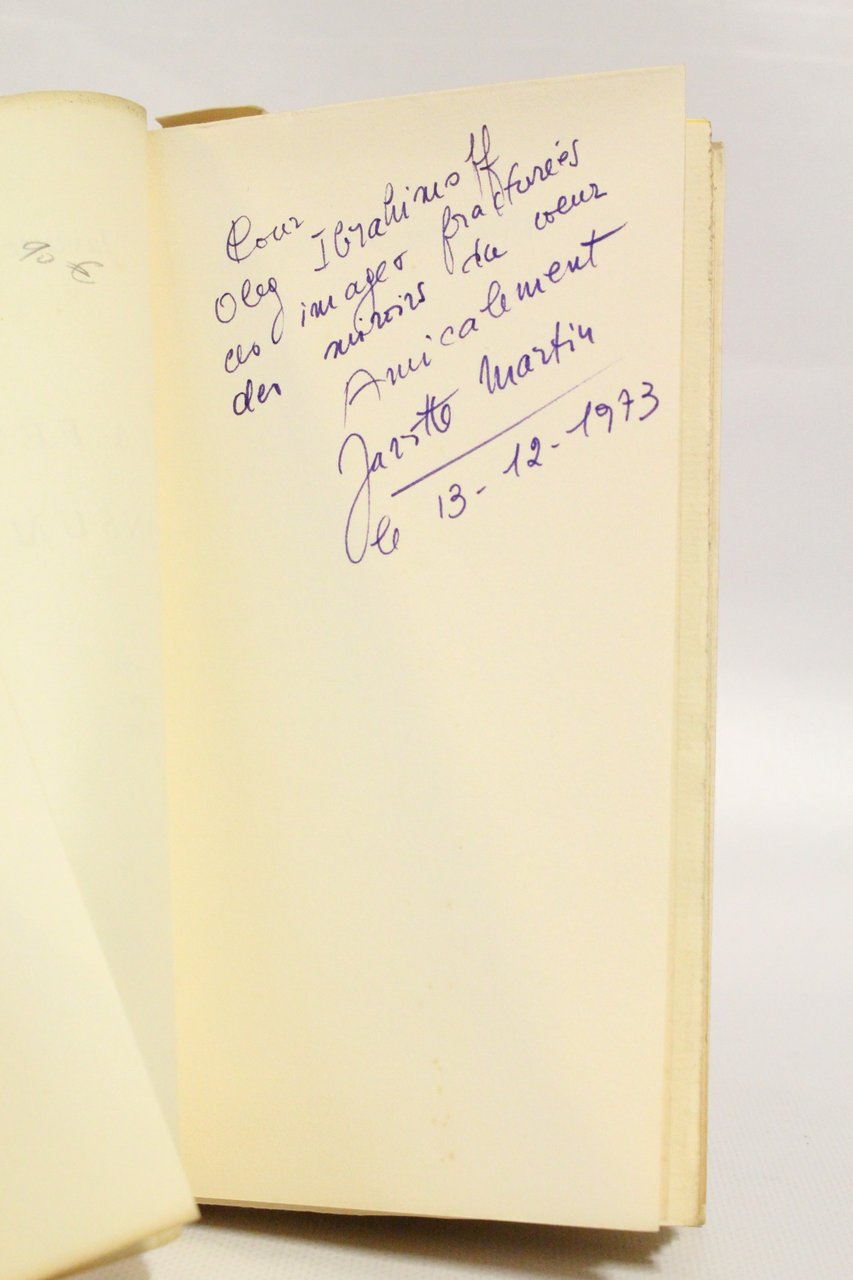 90 €
Pour
Oleg Ibrahimoff
ces images fracturées
des miroirs du coeur
Amicalement
Martin
le 13-12-1973